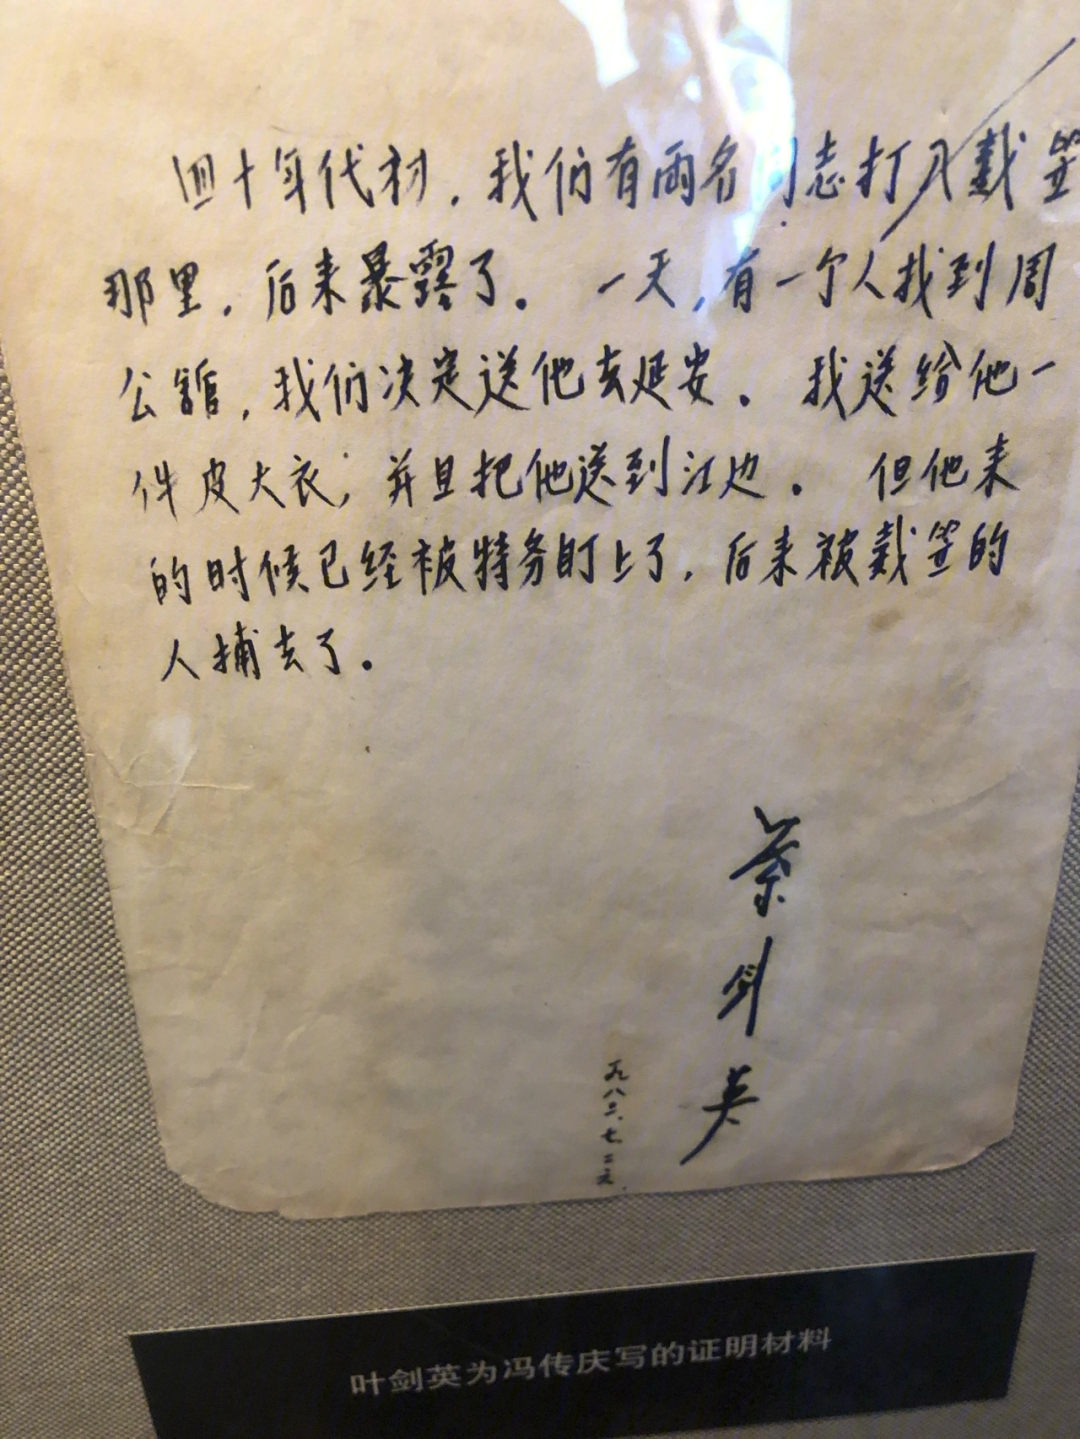 四十年代初，我们有两名同志打入戴笠
那里，后来暴露了。一天，有一个人找到周
公舘，我们决定送他去延安。我送给他一
件皮大衣，并且把他送到江边。但他来
的时候已经被特务盯上了，后来被戴笠的
人捕去了。
葉剑英
一九八三、七、二
叶剑英为冯传庆写的证明材料